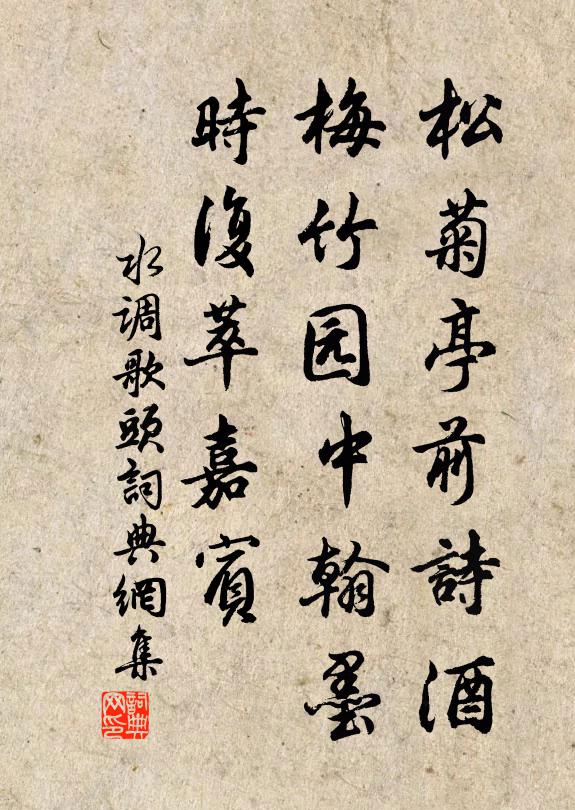 松菊亭前詩酒
梅竹园中翰墨
時復萃嘉賓
水调歌頭詞典網集
詞典网印